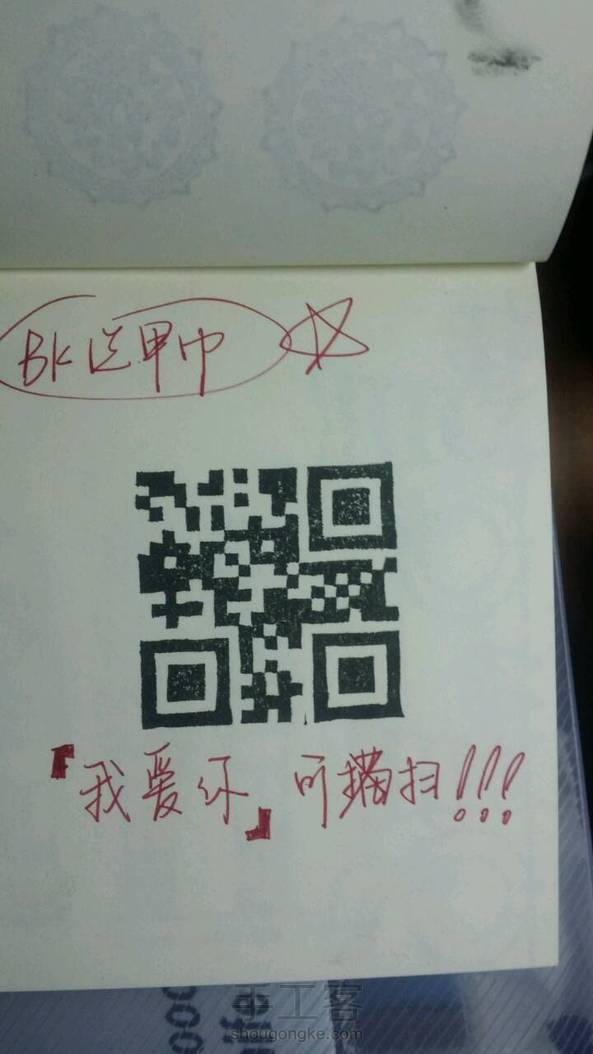 BK送甲巾
『我爱你』可描扫!!!
工客
shougongke.com